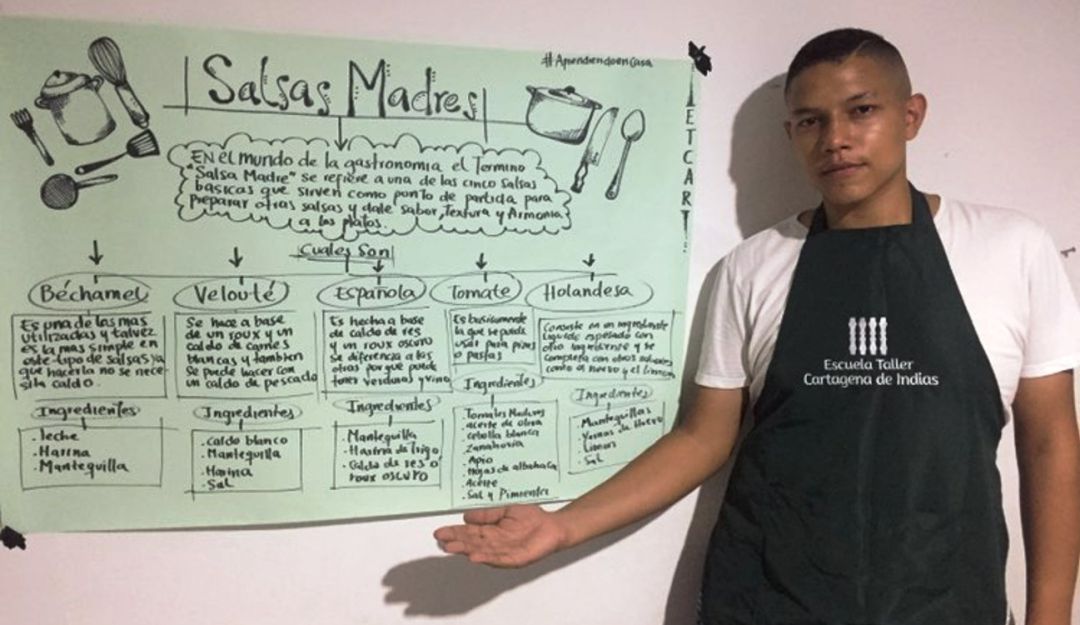 #AprendiendoenCasa
Salsas Madres
ETCART:
EN el mundo de la gastronomia el Termino
"Salsa Madre" se refiere a una de las cinco salsas
basicas que sirven como punto de partida para
preparar otras salsas y dale sabor, Textura y Armonia
a los platos.
Cuales Son
Béchamel
Es una de las mas
utilizadas y talvez
es la mas simple en
este tipo de salsas ya
que hacerla no se nece-
sita caldo.
Ingredientes
. leche
. Harina
. Mantequilla
Velouté
Se hace a base
de un roux y un
caldo de carnes
blancas y tambien
se puede hacer con
un caldo de pescado
Ingredientes
. Caldo blanco
. Mantequilla
. Harina
. Sal
Española
Es hecha a base
de caldo de res
y un roux oscuro
se diferencia a las
otras porque puede
tener verduras y vino
Ingredientes
. Mantequilla
. Harina de trigo
. Caldo de res o
roux oscuro
Tomate
Es basicamente
la que se puede
usar para pizzas
o pastas
Ingredientes
. Tomates Maduros
. aceite de oliva
. cebolla blanca
. Zanahoria
. Apio
. Hojas de albahaca
. Aceite
. Sal y Pimienta
Holandesa
Consiste en un ingrediente
liquido espesado con
otro ingrediente y se
completa con otros sabores
como el huevo y el limon
Ingredientes
. Mantequillas
. Yemas de Huevo
. Limon
. Sal
Escuela Taller
Cartagena de Indias